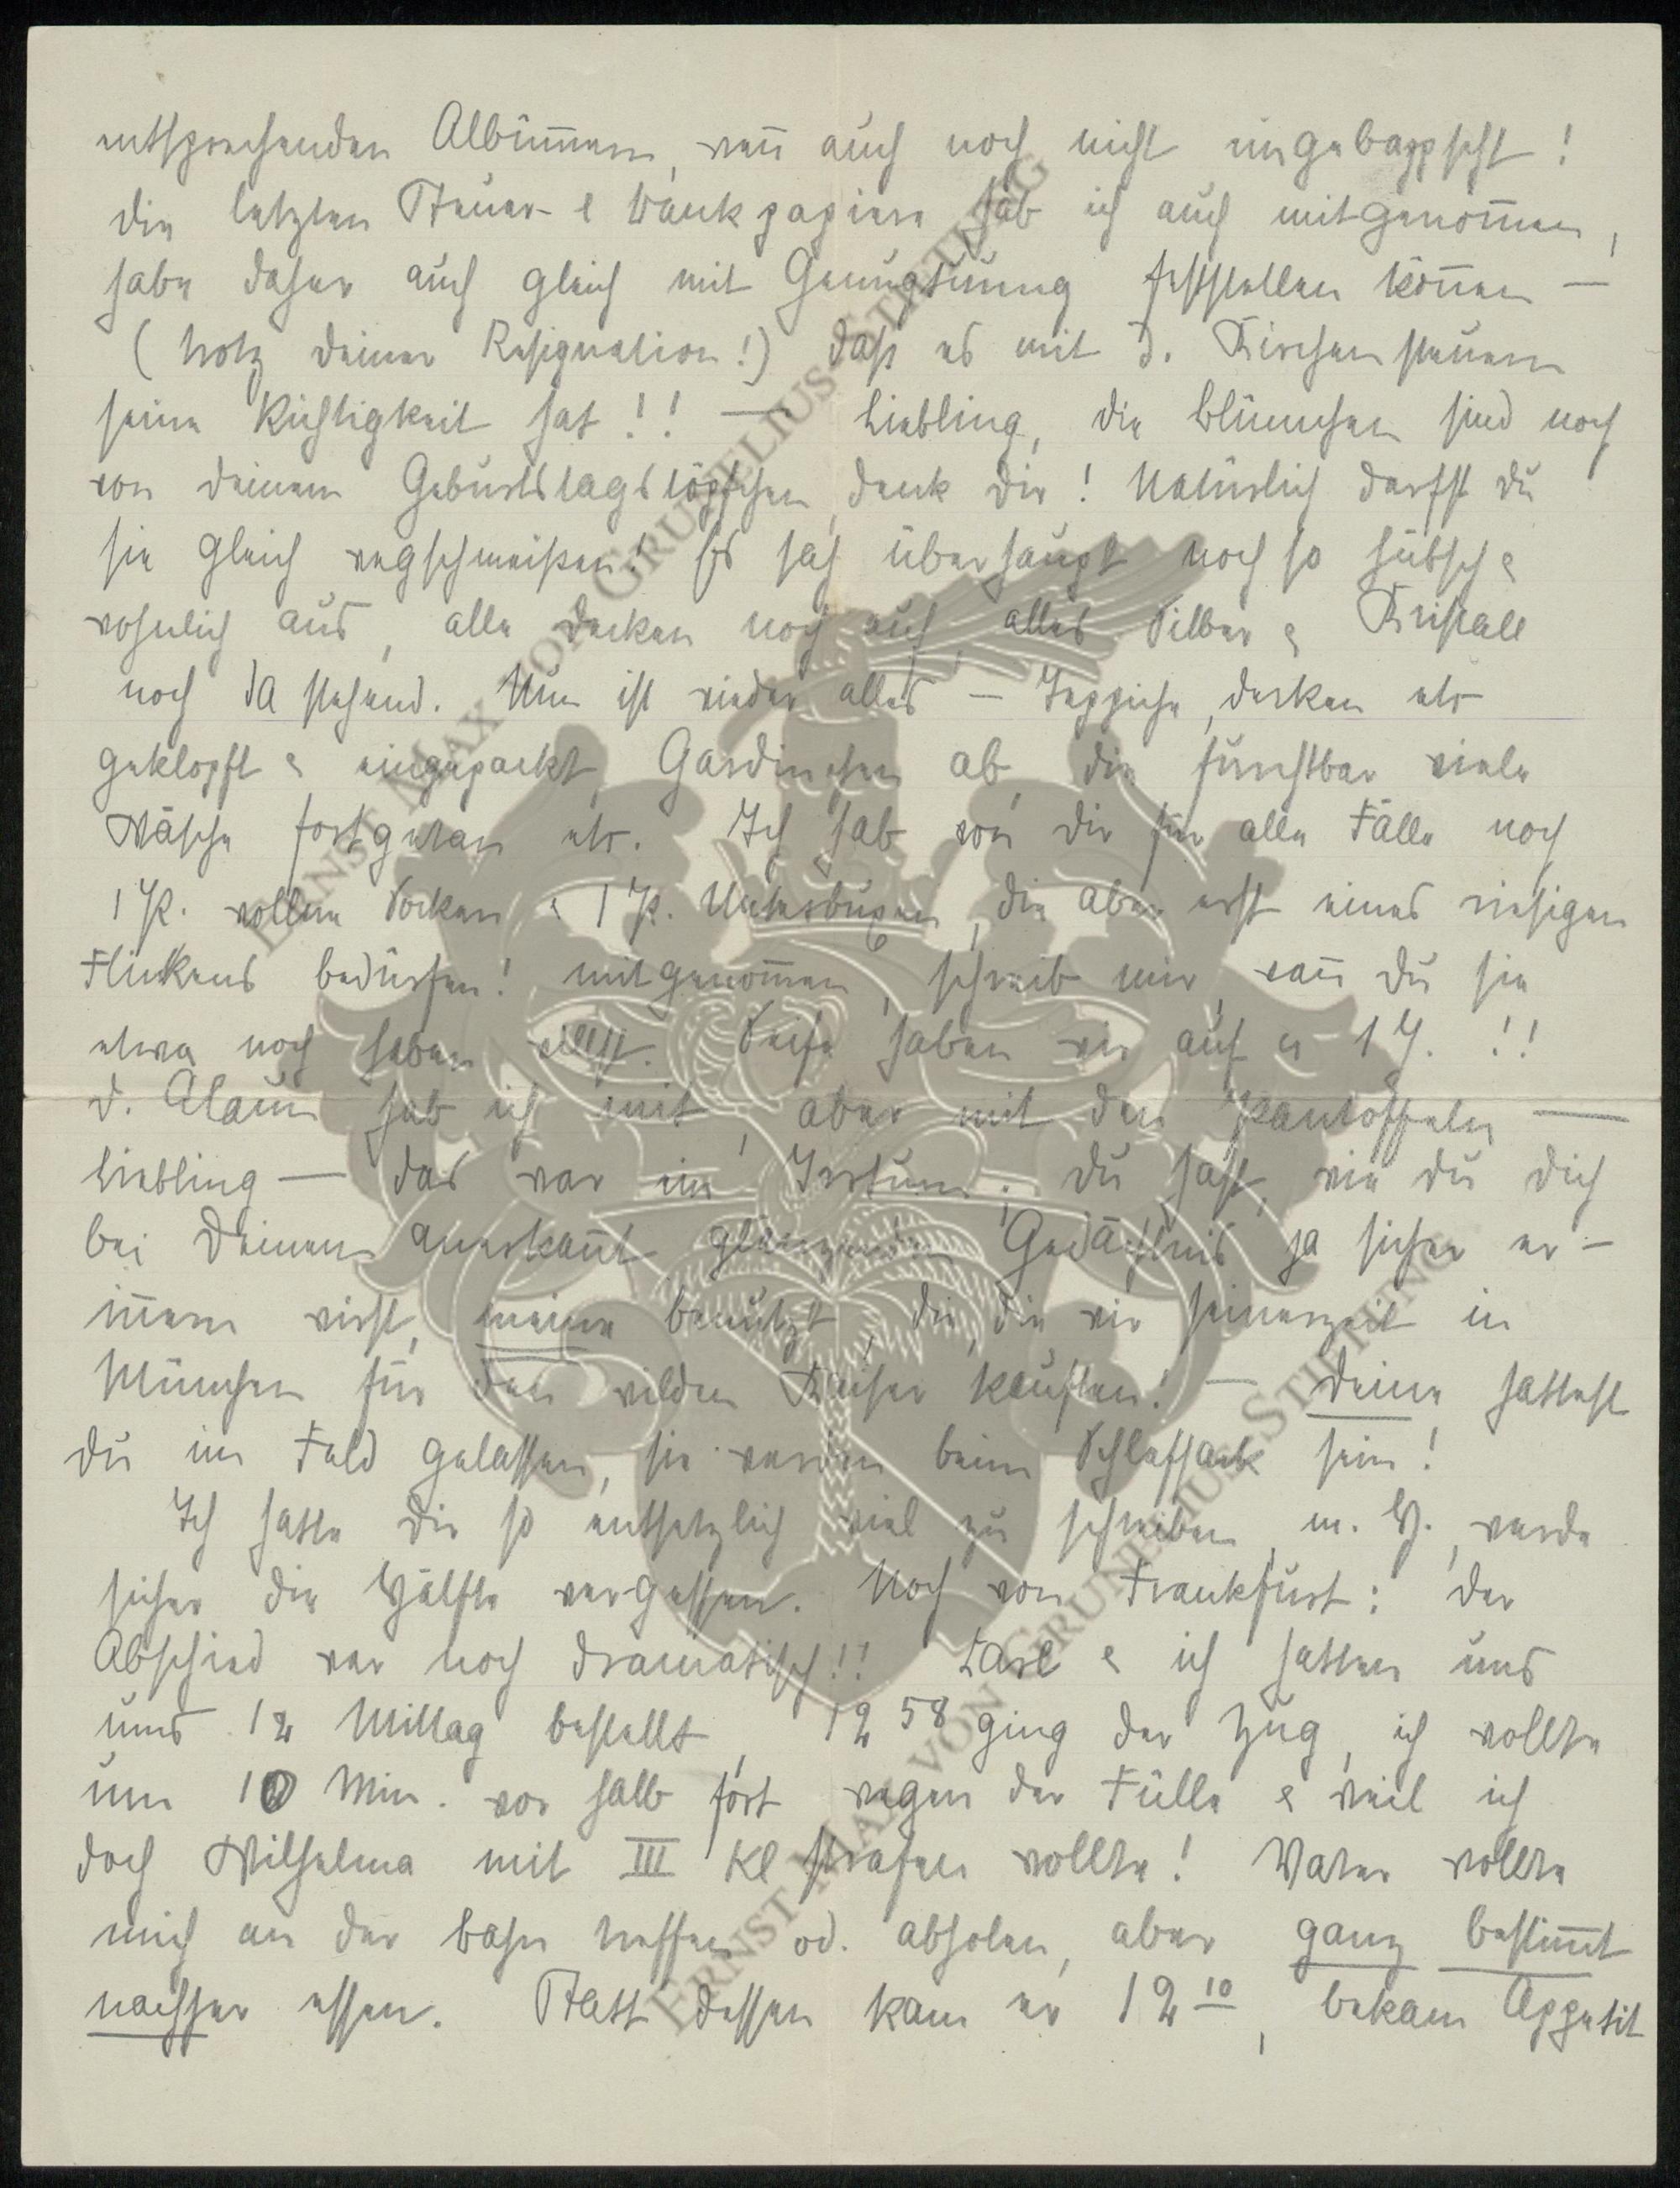 entsprechenden Albümmern, wenn auch noch nicht eingebappscht!
die letzten Steuer- & Bankpapiere hab ich auch mitgenommen,
habe daher auch gleich mit Genugtuung feststellen können —
(trotz deiner Resignation!) daß es mit d. Kirchensteuern
seine Richtigkeit hat!! — Liebling, die Blümchen sind noch
von deinem Geburtstagstöpfchen, denk dir! Natürlich darfst du
sie gleich wegschmeißen! Es sah überhaupt noch so hübsch &
wohnlich aus, alle Decken noch auf, alles Silber & Kristall
noch da stehend. Nun ist wieder alles — Teppiche, Decken etc
geklopft & eingepackt, Gardinchen ab, die furchtbar viele
Wäsche fortgetan etc. Ich hab von dir für alle Fälle noch
1 P. wollne Socken & 1 P. Unterbuxen, die aber erst eines riesigen
Flickens bedürfen! mitgenommen, schreib mir, wann du sie
etwa noch haben willst. Seife haben wir auf ca 1 J. !!
d. Alaun hab ich mit, aber mit den Pantoffeln —
Liebling — das war ein Irrtum. Du hast, wie du dich
bei Deinem anerkannt glänzenden Gedächtnis ja sicher er-
innern wirst, meine benützt, die, die wir seinerzeit in
München für den wilden Kaiser kauften! — Deine hattest
du im Feld gelassen, sie werden beim Schlafsack sein!
Ich hatte dir so entsetzlich viel zu schreiben, m. H., werde
sicher die Hälfte vergessen. Noch von Frankfurt: der
Abschied war noch dramatisch!! Karl & ich hatten uns
ums 12 Mittag bestellt, 12 58 ging der Zug, ich wollte
um 10 Min. vor halb fort wegen der Fülle & weil ich
doch Wilhelma mit III Kl strafen wollte! Vater wollte
mich an der Bahn treffen od. abholen, aber ganz bestimmt
nachher essen. Statt dessen kam er 12 10, bekam Appetit
ERNST MAX VON GRUNELIUS-STIFTUNG
ERNST MAX VON GRUNELIUS-STIFTUNG